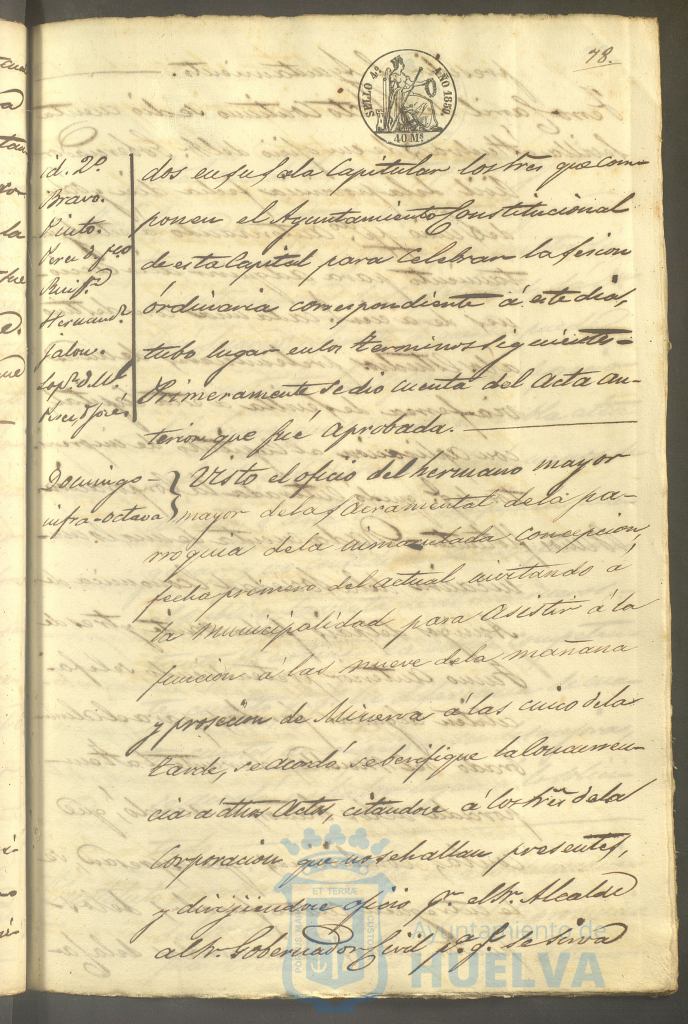 78.
SELLO 4º AÑO 1859.
40 Ms
id. 2º
Bravo.
Pinto.
Perez d. Fco
Ruiz
Hernandz
Jalon.
Lopz d. Ml
Perez, d. José
dos en su sala Capitular los tres que com-
ponen el Ayuntamiento Constitucional
de esta Capital para Celebrar la sesion
órdinaria correspondiente á este dia,
tubo lugar en los terminos siguientes =
Primeramente se dio cuenta del Acta an-
terior que fué aprobada.
Domingo
infra-octava
Visto el oficio del hermano mayor
mayor de la Sacramental de la pa-
rroquia de la inmaculada concepcion,
fecha primero del actual invitando á
la municipalidad para Asistir á la
funcion á las nueve de la mañana
y prosecion de Minerva á las cinco de la
tarde, se acordó se berifique la Concurren-
cia á dhos Actos, citandose á los Sres de la
Corporacion que no se hallan presentes,
y dirijiendose oficio pr. el Sr. Alcalde
al Sr. Gobernador Civil pa. qe. se sirva
Ayuntamiento de
HUELVA